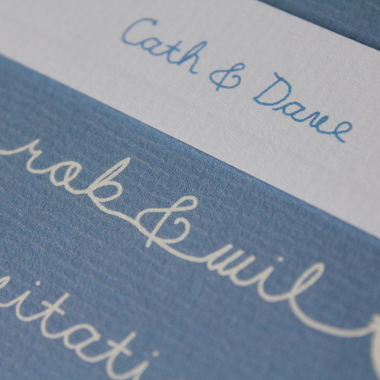 Cath & Dave
rob & wil
itati